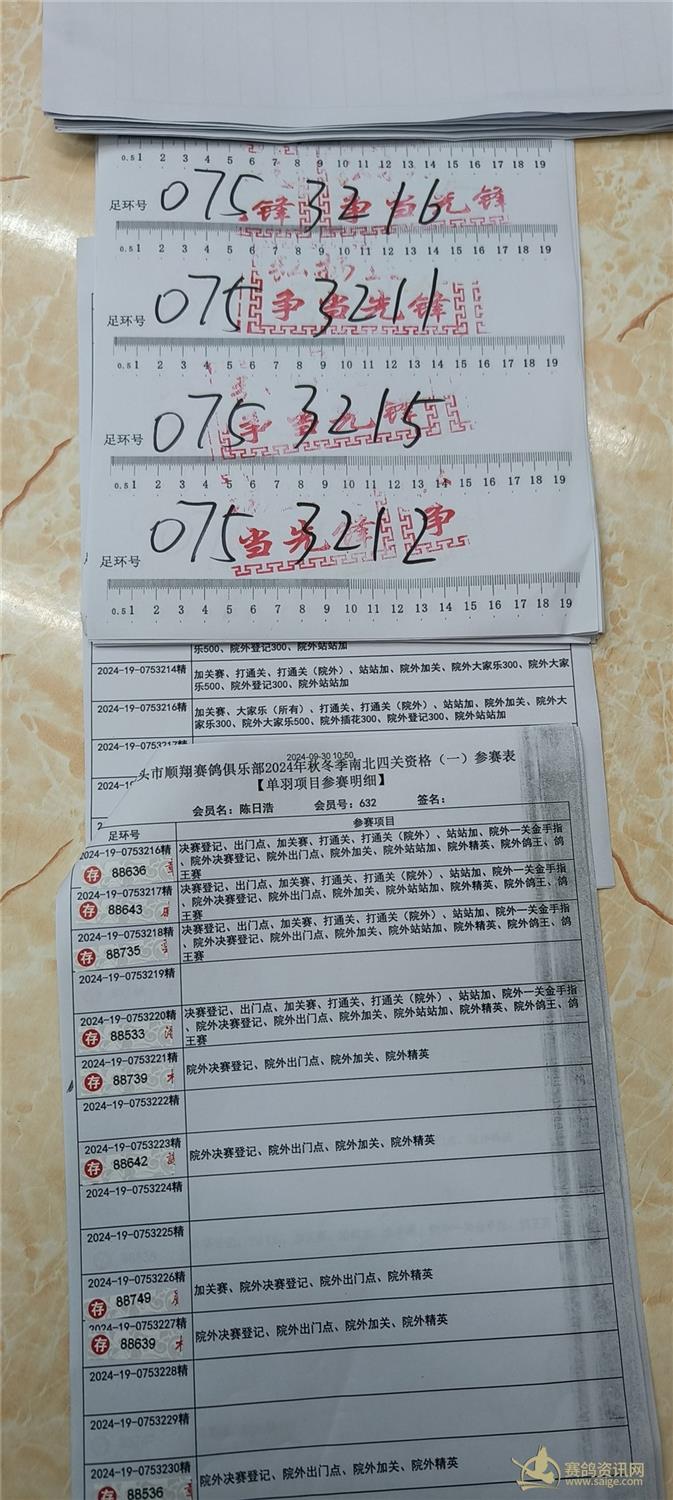 0.5 1 2 3 4 5 6 7 8 9 10 11 12 13 14 15 16 17 18 19
足环号 075 3216
锋 争当先锋
0.5 1 2 3 4 5 6 7 8 9 10 11 12 13 14 15 16 17 18 19
足环号 075 3211
争当先锋
0.5 1 2 3 4 5 6 7 8 9 10 11 12 13 14 15 16 17 18 19
足环号 075 3215
争当先锋
0.5 1 2 3 4 5 6 7 8 9 10 11 12 13 14 15 16 17 18 19
足环号 075 3212
当先锋 争
0.5 1 2 3 4 5 6 7 8 9 10 11 12 13 14 15 16 17 18 19
乐500、院外登记300、院外站站加
2024-19-0753214精 加关赛、打通关、打通关（院外）、站站加、院外加关、院外大家乐300、院外大家
乐500、院外登记300、院外站站加
2024-19-0753216精 加关赛、大家乐（所有）、打通关、打通关（院外）、站站加、院外加关、院外大
家乐300、院外大家乐500、院外插花300、院外登记300、院外站站加
2024-19-0753217
2024-19
2024-09-30 10:50
头市顺翔赛鸽俱乐部2024年秋冬季南北四关资格（一）参赛表
【单羽项目参赛明细】
会员名：陈日浩 会员号：632 签名：
足环号 参赛项目
2024-19-0753216精 决赛登记、出门点、加关赛、打通关、打通关（院外）、站站加、院外一关金手指
存 88636 、院外决赛登记、院外出门点、院外加关、院外站站加、院外精英、院外鸽王、鸽
王赛
2024-19-0753217精 决赛登记、出门点、加关赛、打通关、打通关（院外）、站站加、院外一关金手指
存 88643 、院外决赛登记、院外出门点、院外加关、院外站站加、院外精英、院外鸽王、鸽
王赛
2024-19-0753218精 决赛登记、出门点、加关赛、打通关、打通关（院外）、站站加、院外一关金手指
存 88735 、院外决赛登记、院外出门点、院外加关、院外站站加、院外精英、院外鸽王、鸽
王赛
2024-19-0753219精
2024-19-0753220精 决赛登记、出门点、加关赛、打通关、打通关（院外）、站站加、院外一关金手指
存 88533 、院外决赛登记、院外出门点、院外加关、院外站站加、院外精英、院外鸽王、鸽
王赛
2024-19-0753221精 院外决赛登记、院外出门点、院外加关、院外精英
存 88739
2024-19-0753222精
2024-19-0753223精 院外决赛登记、院外出门点、院外加关、院外精英
存 88642
2024-19-0753224精
2024-19-0753225精
2024-19-0753226精 加关赛、院外决赛登记、院外出门点、院外精英
存 88749
2024-19-0753227精 院外决赛登记、院外出门点、院外加关、院外精英
存 88639
2024-19-0753228精
2024-19-0753229精
2024-19-0753230精 院外决赛登记、院外出门点、院外加关、院外精英
存 88536
赛鸽资讯网
www.saige.com